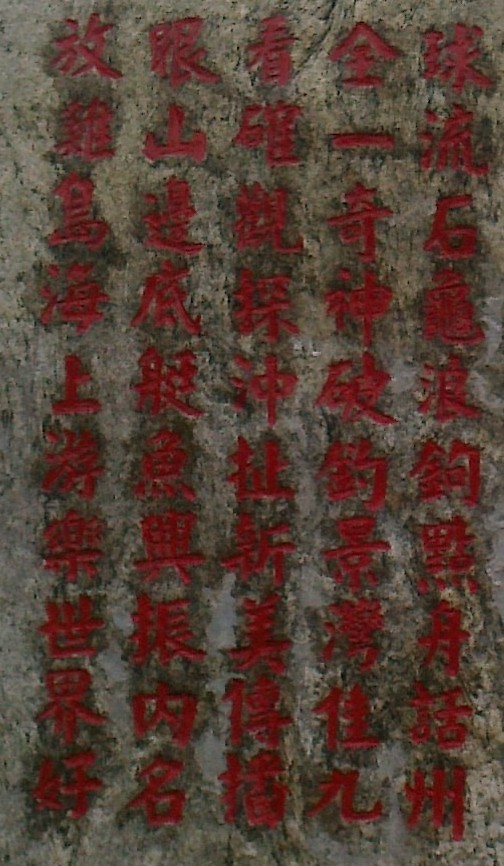 放眼看全球
雞山確一流
島邊觀奇石
海底探神龜
上艇沖破浪
游魚扯釣鉤
樂興新景點
世振美灣舟
界内傳佳話
好名播九州